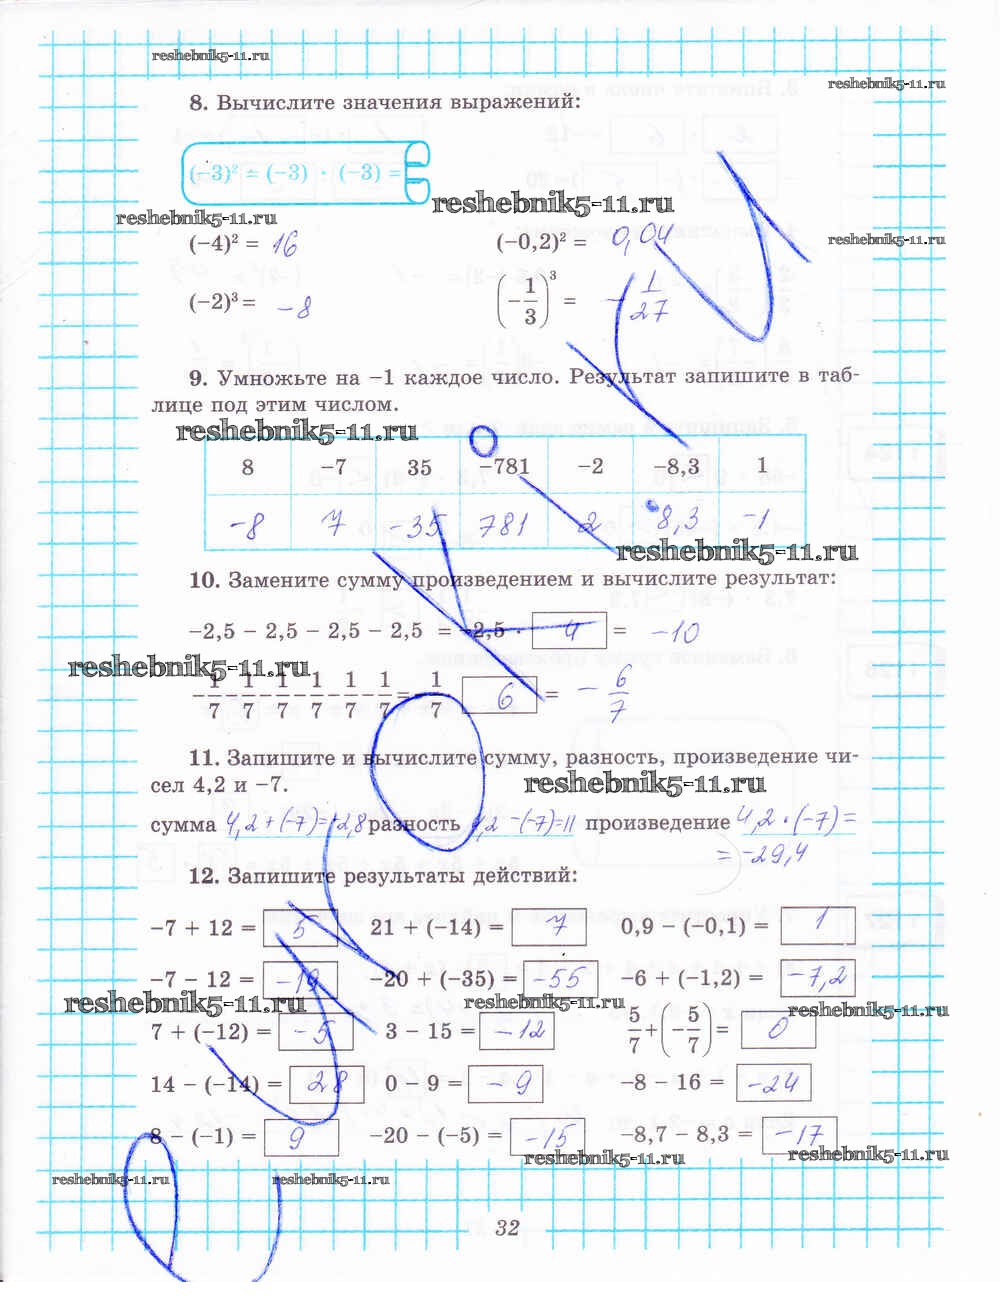 reshebnik5-11.ru
reshebnik5-11.ru
8. Вычислите значения выражений:
(−3)² = (−3) · (−3) =
reshebnik5-11.ru
reshebnik5-11.ru
reshebnik5-11.ru
(−4)² = 16 (−0,2)² = 0,04
(−2)³ = −8 (−1/3)³ = −1/27
9. Умножьте на −1 каждое число. Результат запишите в таб-
лице под этим числом.
reshebnik5-11.ru
8 −7 35 −781 −2 −8,3 1
−8 7 −35 781 2 8,3 −1
reshebnik5-11.ru
10. Замените сумму произведением и вычислите результат:
−2,5 − 2,5 − 2,5 − 2,5 = −2,5 · 4 = −10
reshebnik5-11.ru
−1/7 −1/7 −1/7 −1/7 −1/7 −1/7 = −1/7 · 6 = −6/7
11. Запишите и вычислите сумму, разность, произведение чи-
сел 4,2 и −7.
reshebnik5-11.ru
сумма 4,2 + (−7) = −2,8 разность 4,2 − (−7) = 11 произведение 4,2 · (−7) =
= −29,4
12. Запишите результаты действий:
−7 + 12 = 5 21 + (−14) = 7 0,9 − (−0,1) = 1
−7 − 12 = −19 −20 + (−35) = −55 −6 + (−1,2) = −7,2
reshebnik5-11.ru reshebnik5-11.ru reshebnik5-11.ru
7 + (−12) = −5 3 − 15 = −12 5/7 + (−5/7) = 0
14 − (−14) = 28 0 − 9 = −9 −8 − 16 = −24
8 − (−1) = 9 −20 − (−5) = −15 −8,7 − 8,3 = −17
reshebnik5-11.ru reshebnik5-11.ru
reshebnik5-11.ru reshebnik5-11.ru
32